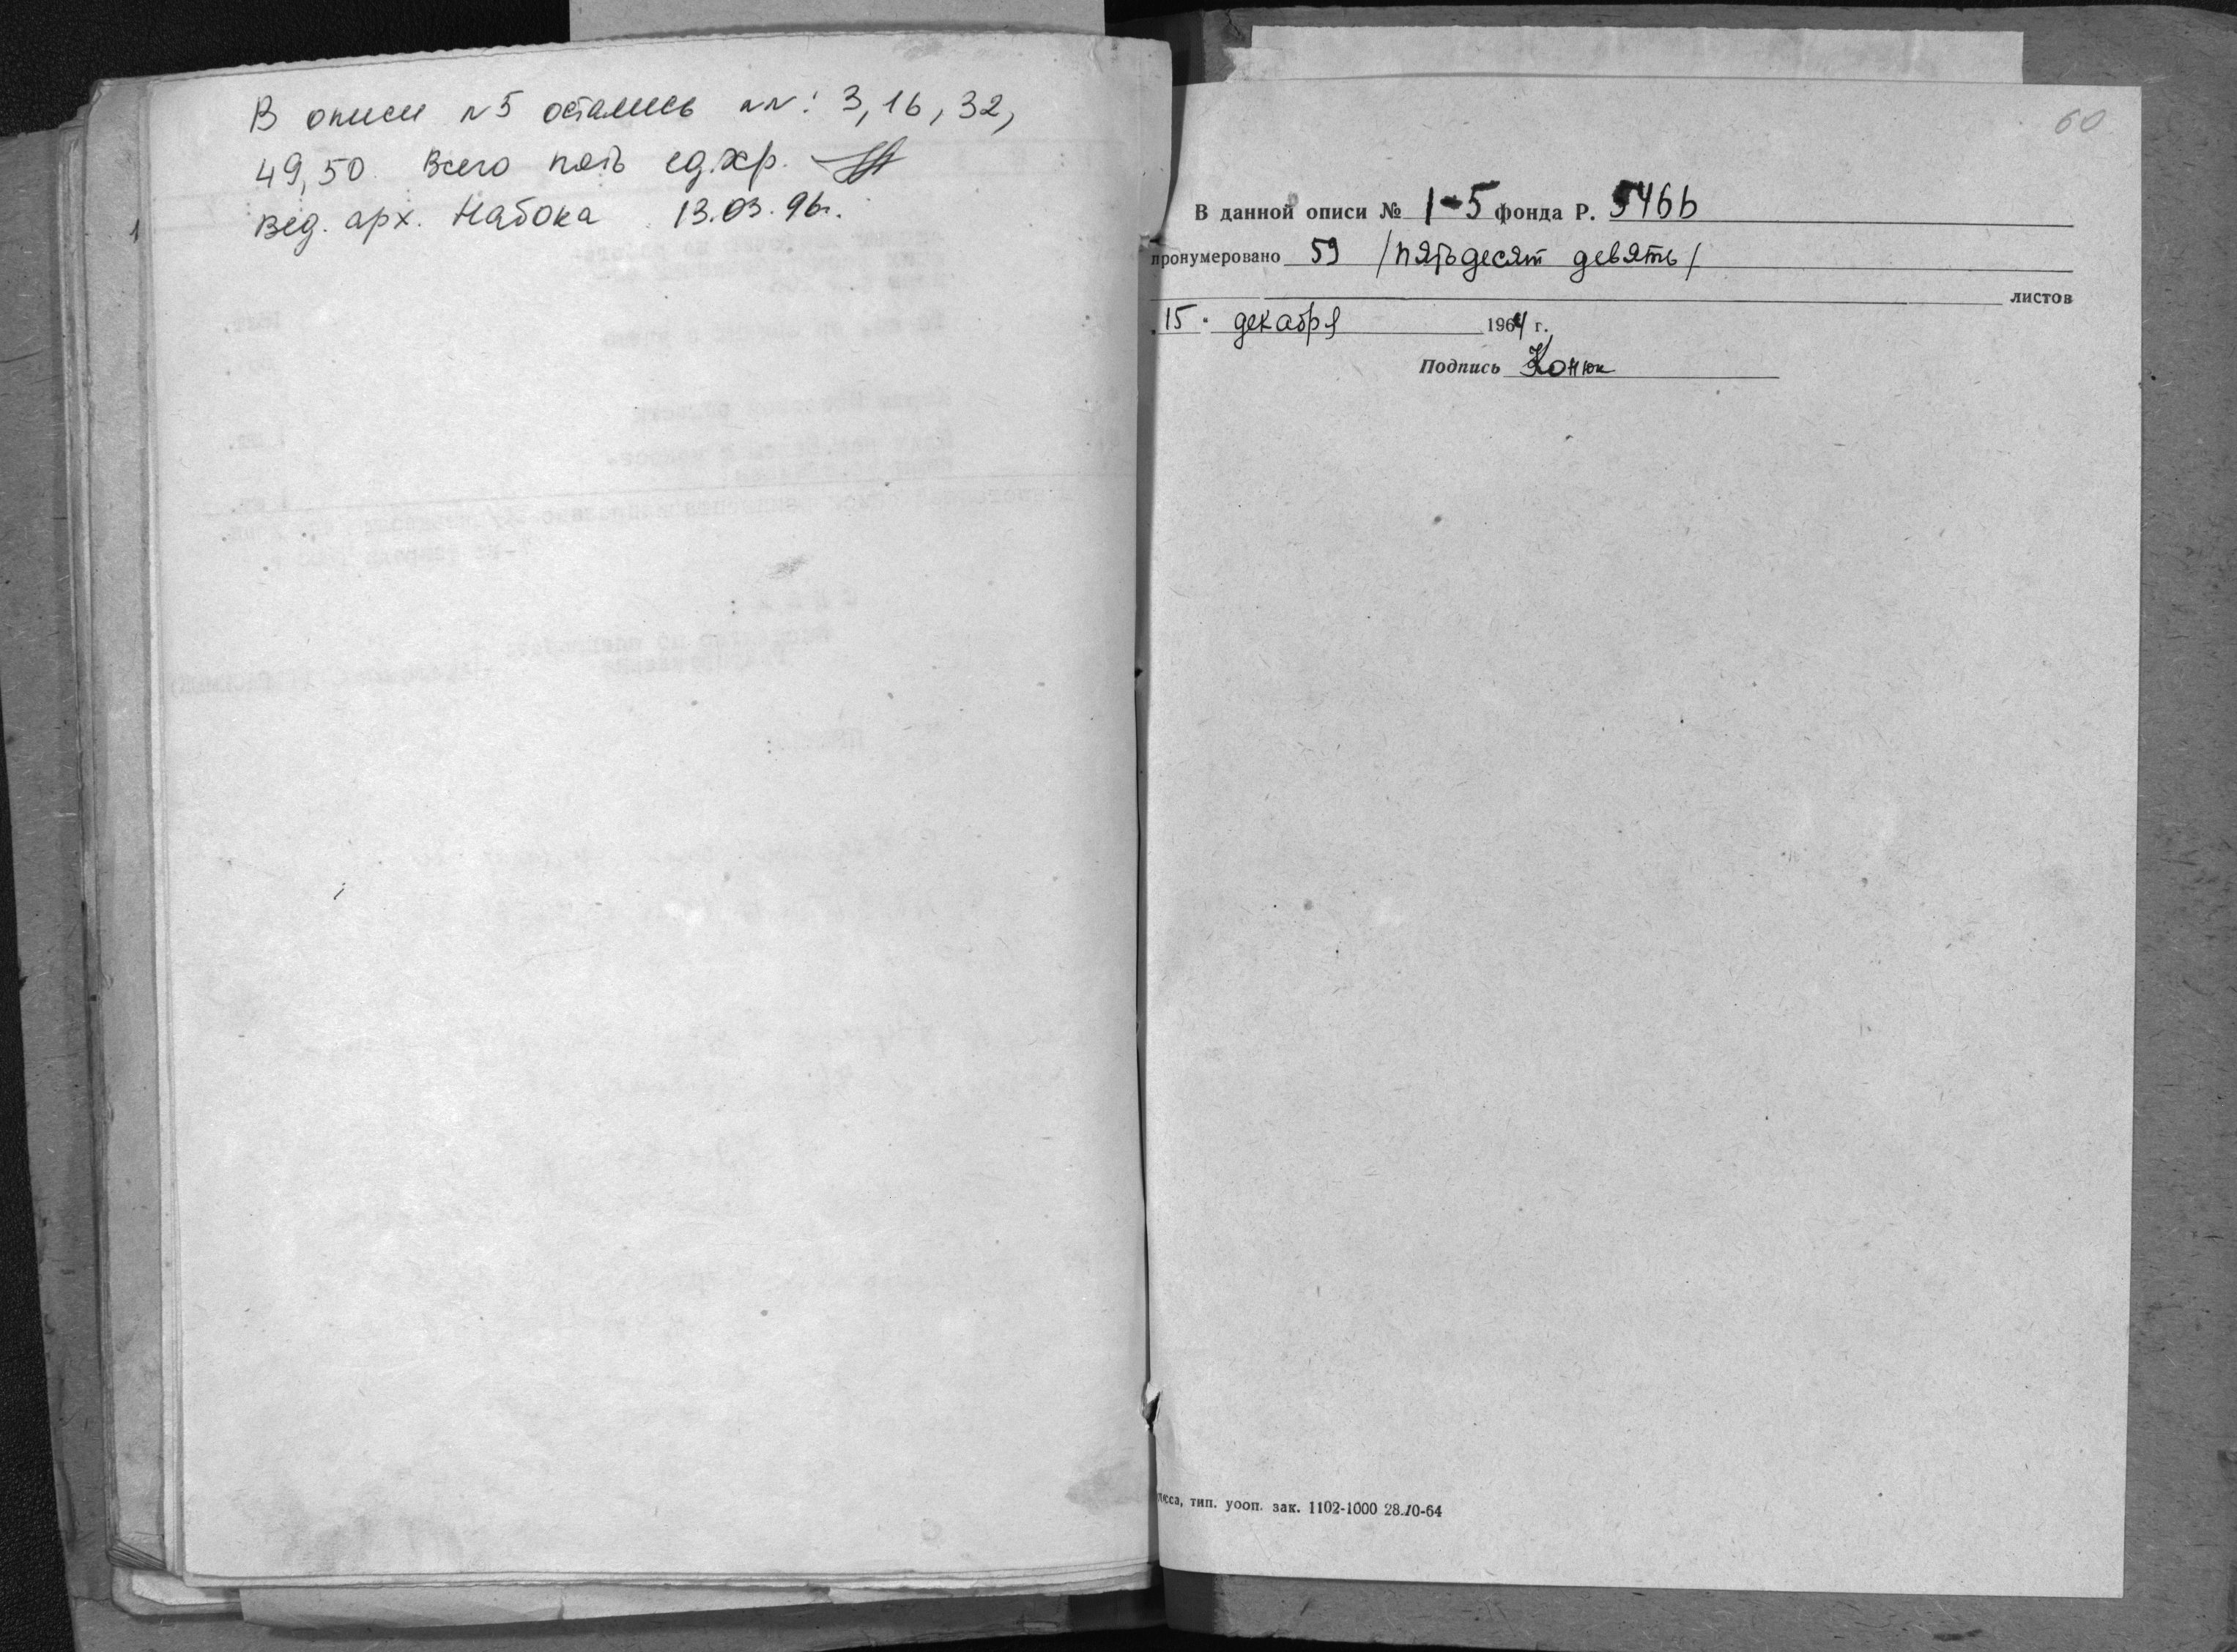 В описи №5 остались №№: 3, 16, 32,
49, 50. Всего пять ед.хр.
вед. арх. Набока 13.03.96г.
60
В данной описи № 1-5 фонда Р. 5466
пронумеровано 59 /пятьдесят девять/
листов
15 " декабря 1964 г.
Подпись Конюк
тип. уооп. зак. 1102-1000 28.10-64